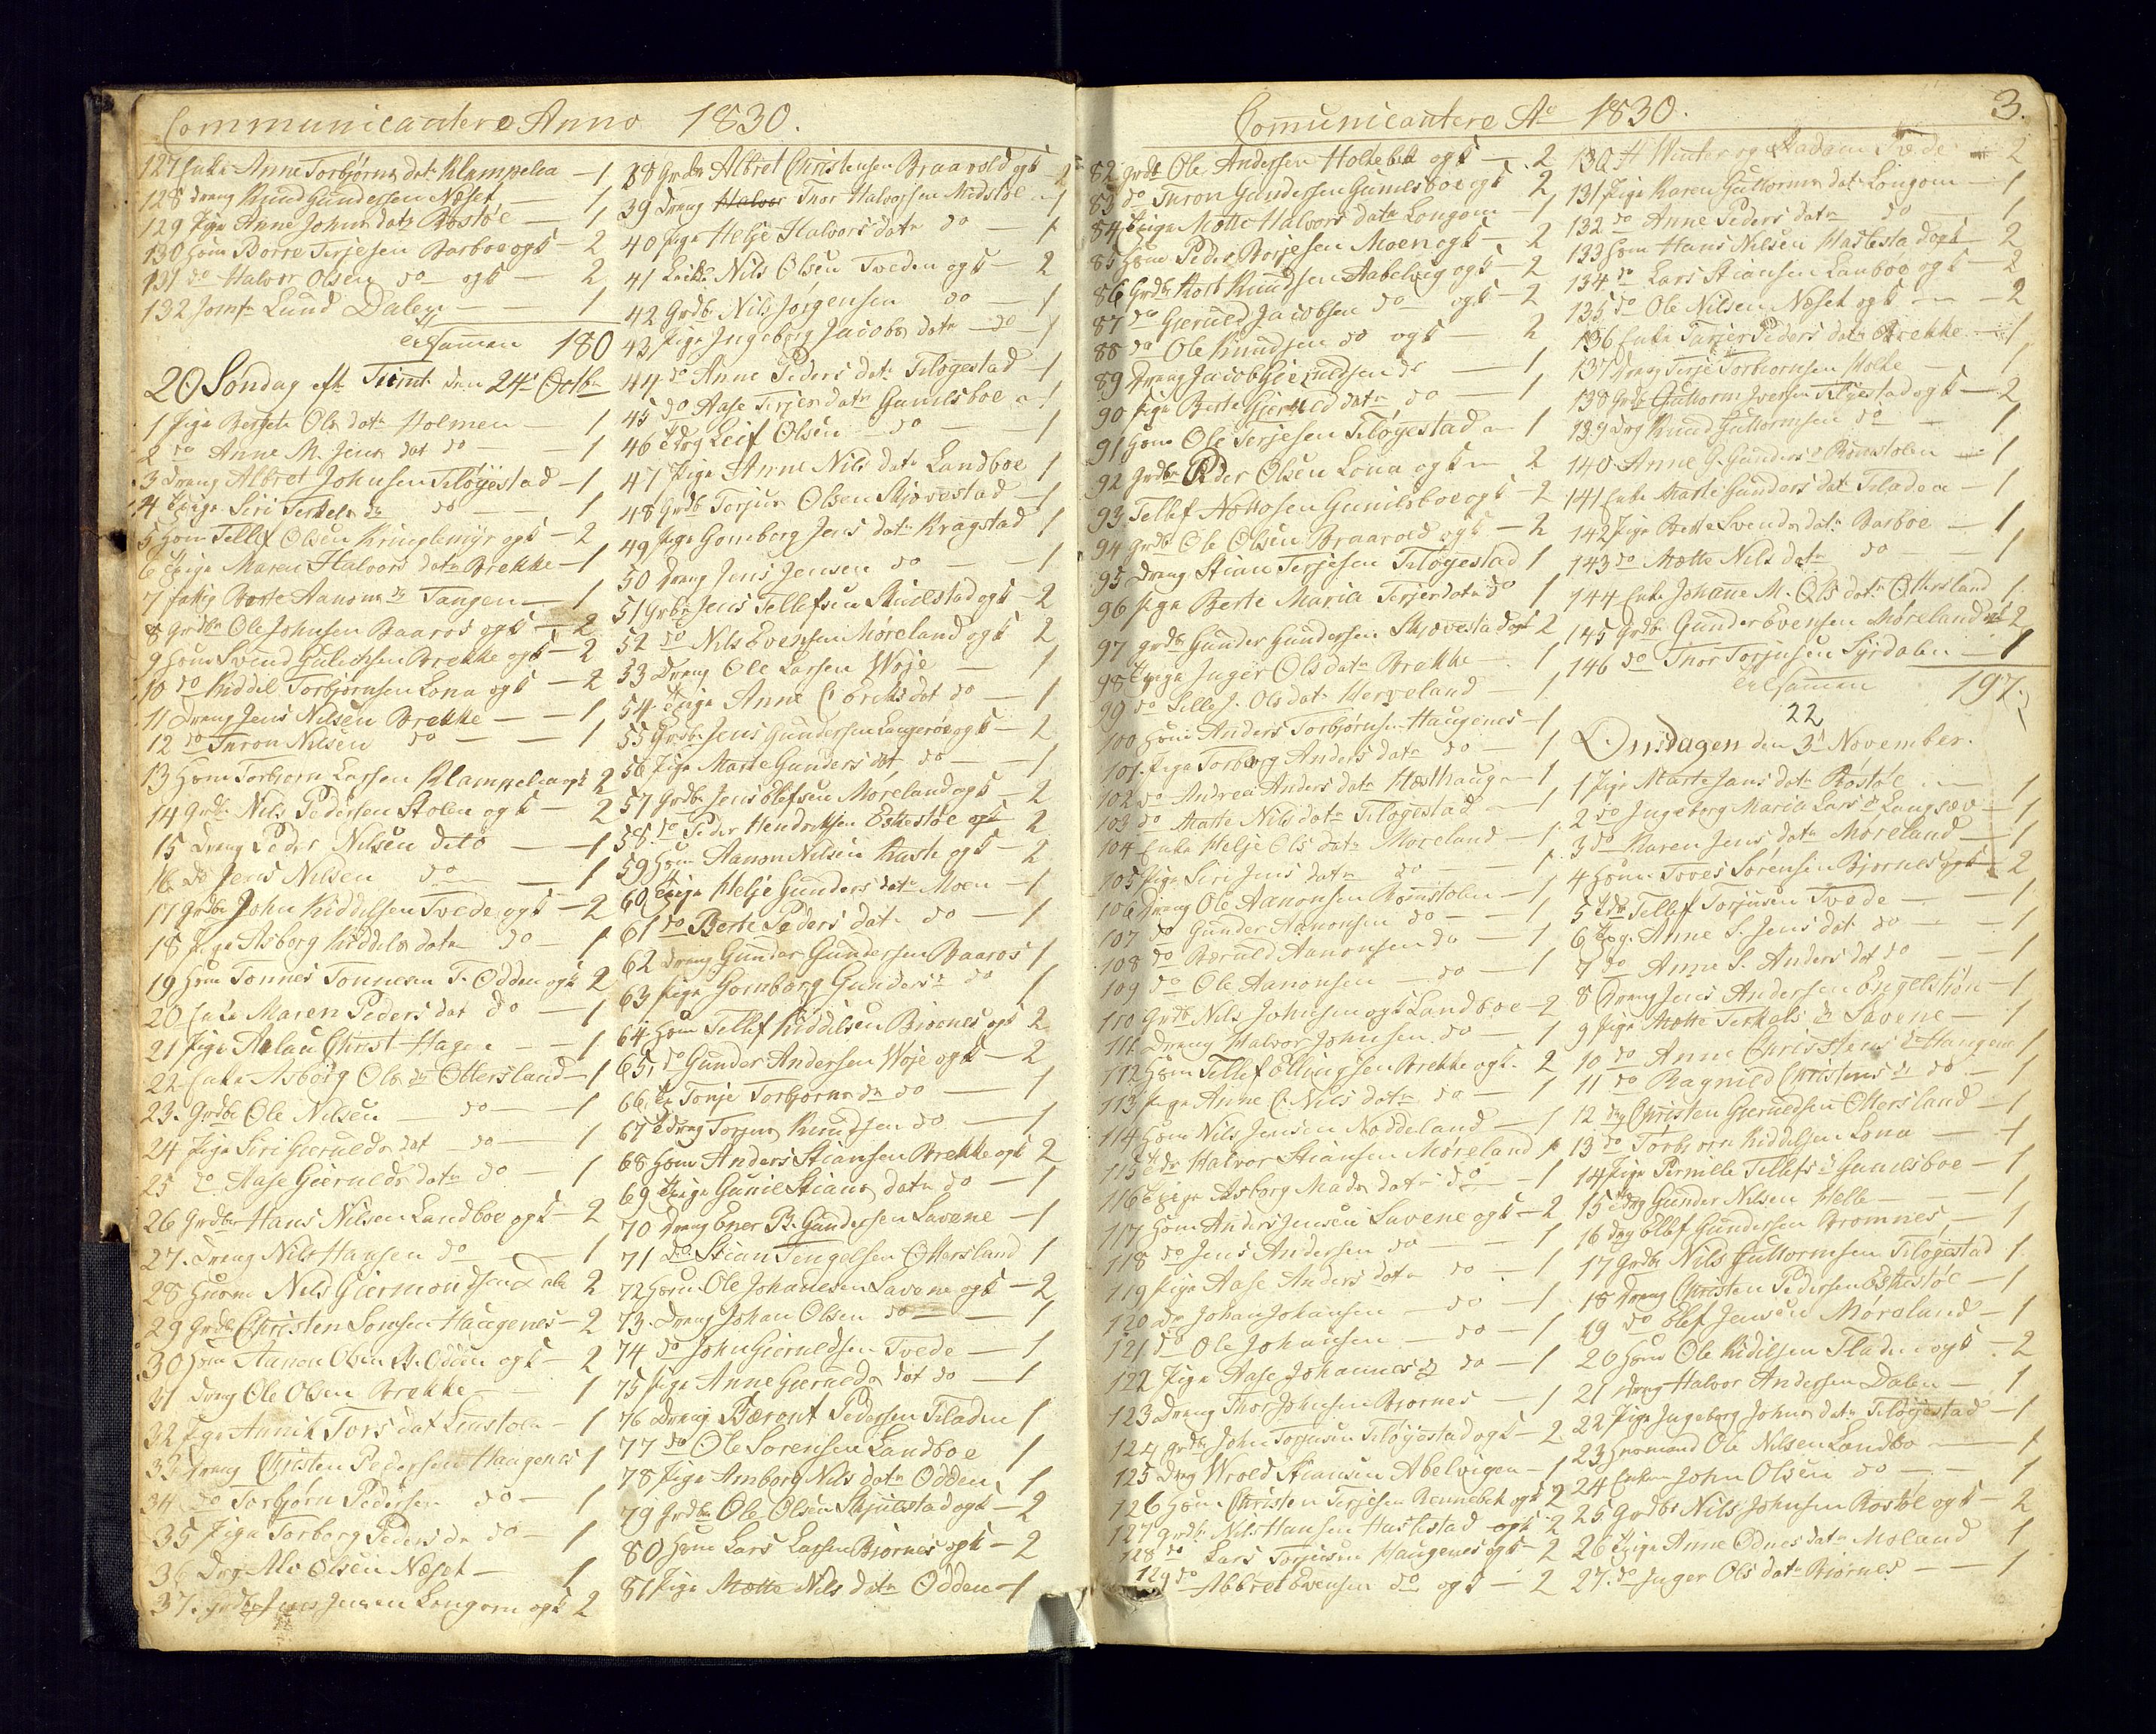 Communicantere Anno 1830.
127 Enke Anne Torbjørns datr Klampelea - 1
128 dreng Knud Gundersen Næset - 1
129 Pige Anne Johns datr Røstøe - 1
130 Hom Borre Terjesen Barboe ogk - 2
131 do Halvor Olsen do ogk - 2
132 Jomfr Lund Dalen - 1
Er Sammen 180
20 Søndag eft. Trinit. den 24de Octbr
1 Pige Bergete Ols datr Holmen - 1
2 do Anne M. Jens dat do - 1
3 Dreng Albret Johnsen Tiløyestad - 1
4 Pige Siri Terkels dr do - 1
5 Hom Tellef Olsen Kringlemyr ogk - 2
6 Pige Maren Halvors datr Brekke - 1
7 fattig Berte Aanons dr Tangen - 1
8 Grdbr Ole Johnsen Baaros ogk - 2
9 Hom Svend Gulichsen Brekke ogk - 2
10 do Kiddel Torbjørnsen Lona ogk - 2
11 Dreng Jens Nilsen Brekke - 1
12 do Tnron Nilsen do - 1
13 Hom Torbjorn Larsen Klampelea ogk 2
14 Grdbr Nils Pedersen Stolen ogk - 2
15 Dreng Peder Nilsen dito - 1
16 do Jens Nilsen do - 1
17 Grdbr John Kiddelsen Tvede ogk - 2
18 Pige Asborg Kiddels datr do - 1
19 Hom Tonnes Tonnesen T. Odden ogk 2
20 Enke Maren Peders dat do - 1
21 Pige Aslau Christ Hagen - 1
22 Enke Asborg Ols dr Ottersland - 1
23. Grdbr Ole Nilsen do - 1
24 Pige Siri Gierulds dat do - 1
25 do Aase Gierulds datr do - 1
26 Grdbr Hans Nilsen Landboe ogk - 2
27. Dreng Nils Hansen do - 1
28 Huom Nils Giermondsen Dale 2
29 Grdb Christen Lomsen Haugenes - 2
30 Hom Aanon Olsen St. Odden ogk - 2
31 Dreng Ole Olsen Brekke - 1
32 Pige Annik Tors dat Linstolen - 1
33 Dreng Christen Pedersen Haugenes 1
34 do Torbjørn Pedersen do - 1
35 Pige Torborg Peders dr do - 1
36 Drg Alv Olsen Næset - 1
37. Grdbr Jens Jensen Longom ogk 2
38 Grdbr Albret Christensen Braavold ogk - 2
39 Dreng Halvor Tnor Halvorsen Midstøe - 1
40 Pige Helje Halvors datr do - 1
41 Nils Olsen Tveden ogk - 2
42 Grdb. Nils Jørgensen do - 1
43 Pige Ingeborg Jacobs datr do - 1
44 do Anne Peders datr Tiløgestad - 1
45 do Aase Terjes datr Gunilsboe - 1
46 Leif Olsen do - 1
47 Pige Anne Nils datr Landboe 1
48 Grdb Torjus Olsen Skjovestad - 1
49 Pige Gomborg Jens datr Kragstad 1
50 Dreng Jens Jensen do - 1
51 Grdbr Jens Tellefsen Skielstad ogk - 2
52 do Nils Evensen Møreland ogk 2
53 Dreng Ole Larsen Woje - 1
54 Pige Anne dot do - 1
55 Grdbr Jens Gundersen Langerøe ogk - 2
56 Pige Marte Gunders dot do - 1
57 Grdbr Jens Olefsen Møreland ogk - 2
58 do Peder Hendriksen Eskestøe ogk 2
59 Hom Aanon Nilsen ogk - 2
60 Pige Helje Gunders datr Moen - 1
61 do Berte Peders datr do - 1
62 Dreng Gunder Gundersen Baaros 1
63 Pige Gomborg Gunders dr do 1
64 Hom Tellef Kiddelsen Biornes ogk 2
65 do Gunder Andersen Woje ogk - 2
66 Tonje Torbjørns dr do - 1
67 dreng Torjus Knudsen do - 1
68 Hom Anders Stiansen Brekke ogk 2
69 Pige Gunil Stians datr do - 1
70 Dreng Ener B. Gundersen Savene - 1
71 do Stian Tengelsen Ottersland 1
72 Hom Ole Johannesen Savene ogk - 2
73. Dreng Johan Olsen do - 1
74 do John Gieruldsen Tvede - 1
75 Pige Anne Gierulds dot do - 1
76 Dreng Bæront Pedersen Fladen 1
77 do Ole Sorensen Landboe 1
78 Pige Amborg Nils datr Odden 1
79 Grdbr Ole Olsen Skjulestad ogk - 2
80 Hom Lars Larsen Bjornes ogk - 2
81 Pige Mætte Nils datr Odden - 1
Comunicantere Ao 1830. 3.
82 Grdb Ole Andersen Holtebek ogk - 2
83 do Tnron Gundersen Gunilsboe ogk 2
84 Pige Mætte Halvors datr Longom - 1
85 Hom Peder Borjesen Moen ogk - 2
86 Grdbr Knudsen Aabelvig ogk - 2
87 do Gieruld Jacobsen do ogk - 2
88 do Ole Knudsen do ogk - 2
89 Dreng Jacob Gieruldsen do - 1
90 Pige Berte Gieruld datr do - 1
91 Hom Ole Terjesen Tiløyestad - 1
92 Grdbr Peder Olsen Lona ogk - 2
93. Tellef Gunilsboe ogk - 2
94 Grdb Ole Olsen Braavold ogk - 2
95 Dreng Stian Terjesen Tiløyestad 1
96 Pige Berte Maria Terjes datr do 1
97 Grdbr Gunder Gundersen Skjovestad ogk 2
98 Pige Inger Ols datr Brekke - 1
99 do Sille J. Ols dat Herveland - 1
100 Hom Anders Torbjørnsen Haugenes - 1
101. Pige Torborg Anders datr do - 1
102 do Andrea Anders datr Hæsthaug - 1
103 do Marte Nils datr Tiløgestad - 1
104 Enke Helje Ols datr Moreland - 1
105 Pige Siri Jens datr do - 1
106 Dreng Ole Aanonsen Bomstolen - 1
107 do Gunder Aanonsen do - 1
108 do Aanonsen do - 1
109 do Ole Aanonsen do - 1
110 Grdb Nils Johnsen ogk Landboe - 2
111 Dreng Halvor Johnsen do - 1
112 Hom Tellef Ellingsen Brekke ogk. 2
113 Pige Anne C. Nils datr do - 1
114 Hom Nils Jensen Nodeland - 1
115 Halvor Stiansen Møreland 1
116 Pige Asborg Mads datr do - 1
117 Hom Anders Jensen Savene ogk - 2
118 do Jens Andersen do - 1
119 Pige Aase Anders datr do - 1
120 Dr Johan Johansen do - 1
121 do Ole Johansen do - 1
122 Pige Aase Johannes dr do - 1
123 Dreng Thor Johnsen Bjornes - 1
124 Grdb John Torjusen Tiløyestad ogk - 2
125 Drg Wrold Stiansen Abelvigen - 1
126 Hom Christen Terjesen Rennebek ogk 2
127 Grdb. Nils Hansen Hastestad ogk 2
128 do Lars Torjusen Haugenes ogk - 2
129 do Abbret Evensen do ogk - 2
130 H Winter og Madam Tvede 2
131 Pige Karen Guttorms dat Longom - 1
132 do Anne Peders datr do - 1
133 Hom Hans Nilsen Hastestad ogk - 2
134 do Lars Stiansen Lanboe ogk - 2
135 do Ole Nilsen Næset ogk - 2
136 Enke Peders datr Brekke - 1
137 Dreng Terje Torbiornsen Holte - 1
138 Grdb Guttorm Iversen Tiløiestad ogk - 2
139 Drg Knud Guttormsen do - 1
140 Anne G. Gunders dr Bomstolen - 1
141 Enke Marte Gunders dat Fladen - 1
142 Pige Berte Svends datr Barboe - 1
143 do Mætte Nils datr do - 1
144 Enke Johane M. Ols datr Ottersland 1
145 Grdbr Gunder Evensen Møreland ogk 2
146 do Tnor Torjusen Syrdalen - 1
Er Sammen 197.
22
Onsdagen den 3de November.
1 Pige Marte Jans datr Røstøe 1
2 do Ingeborg Maria Lars dr Langsæv - 1
3 do Karen Jens datr Moreland - 1
4 Hom Toves Sørensen Bjornes ogk 2
5 Tellef Torjusen Tvede - 1
6 Anne S. Jens dat do - 1
7 do Anne S. Anders dat do - 1
8 Dreng Jens Andersen Engelstiøn - 1
9 Pige Mætte Terkels dr Savene - 1
10 do Anne Christens dr Haugene 1
11 do Ragnild Christens dr do - 1
12 drg Christen Gieruldsen Ottersland - 1
13 do Torbjorn Kiddelsen Lona - 1
14 Pige Pernille Tellefs dr Gunilsboe - 1
15 drg Gunder Nilsen Helle - 1
16 drg Ellef Gundersen Bromnes - 1
17 Grdbr Nils Guttormsen Tiløjestad 1
18 Dreng Christen Pedersen Eskestøe - 1
19 do Elef Jensen Moreland - 1
20 Hom Ole Kidilsen Fladen ogk - 2
21 Dreng Halvor Andersen Dalen - 1
22 Pige Ingeborg Johns datr Tiløyestad - 1
23 Ole Nilsen Landbo - 1
24 Enkem John Olsen do - 1
25 Grdbr Nils Johnsen Rostøl ogk - 2
26 Pige Anne Odnes datr Moland 1
27. do Inger Ols datr Biornes - 1